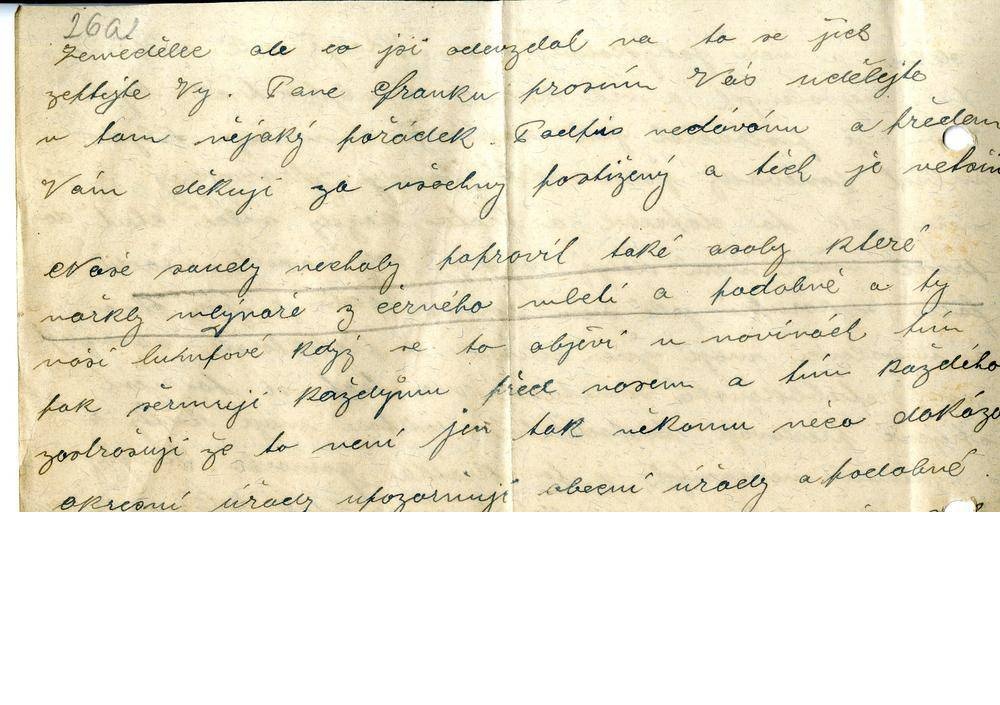 26a2
Zemedělce ale co jsi odevzdal na to se jich
zeptejte Vy. Pane Franku prosím Vás udělejte
v tom nějaký pořádek. Podpis nedávám a předem
Vám děkuji za všechny postižený a těch je vetsin
Naše soudy nechaly popravit také osoby které
nařkly mlynáře z černého mletí a podobně a ty
naší lumpové když se to objeví v novinách tím
tak šermují každýmu před nosem a tím každého
zastrašují že to není jen tak někomu něco dokáza
okresní úřady upozorňují obecní úřady a podobně.